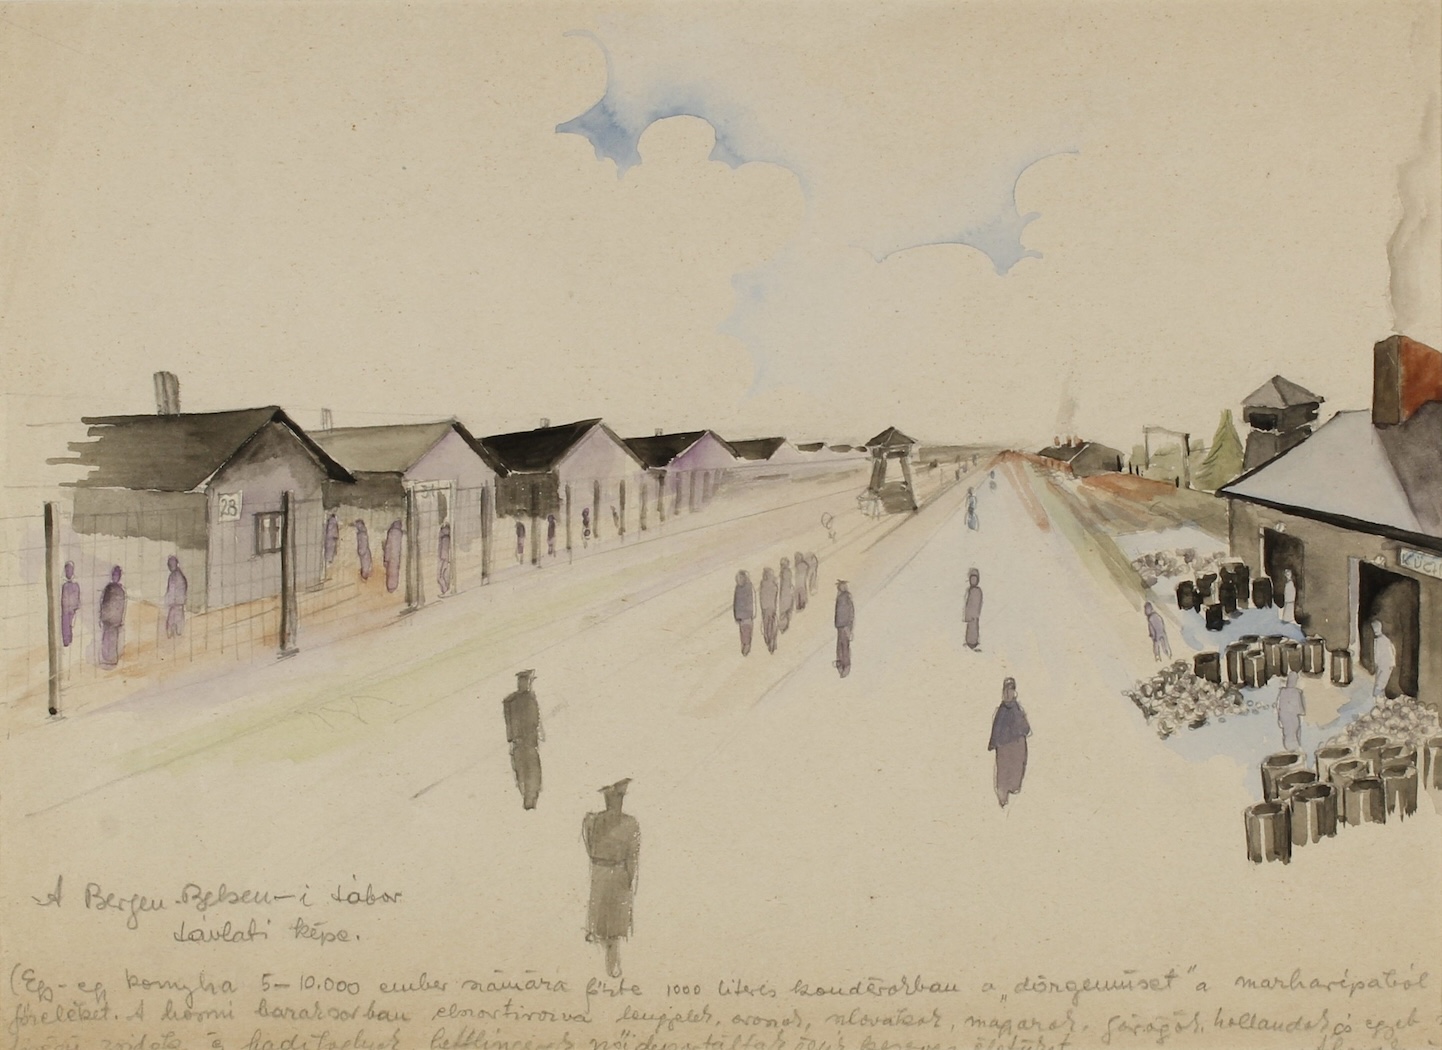 28
31
KÜCH
A Bergen-Belsen-i tábor
távlati képe.
(Egy-egy konyha 5-10.000 ember számára főzte 1000 literes kondérokban a „dörgemüset" a marharépából
főzeléket. A hosszú baraksorban elsortirozva lengyelek, oroszok, szlovákok, magyarok, görögök, hollandok és egyéb
zsidók és hadifoglyok